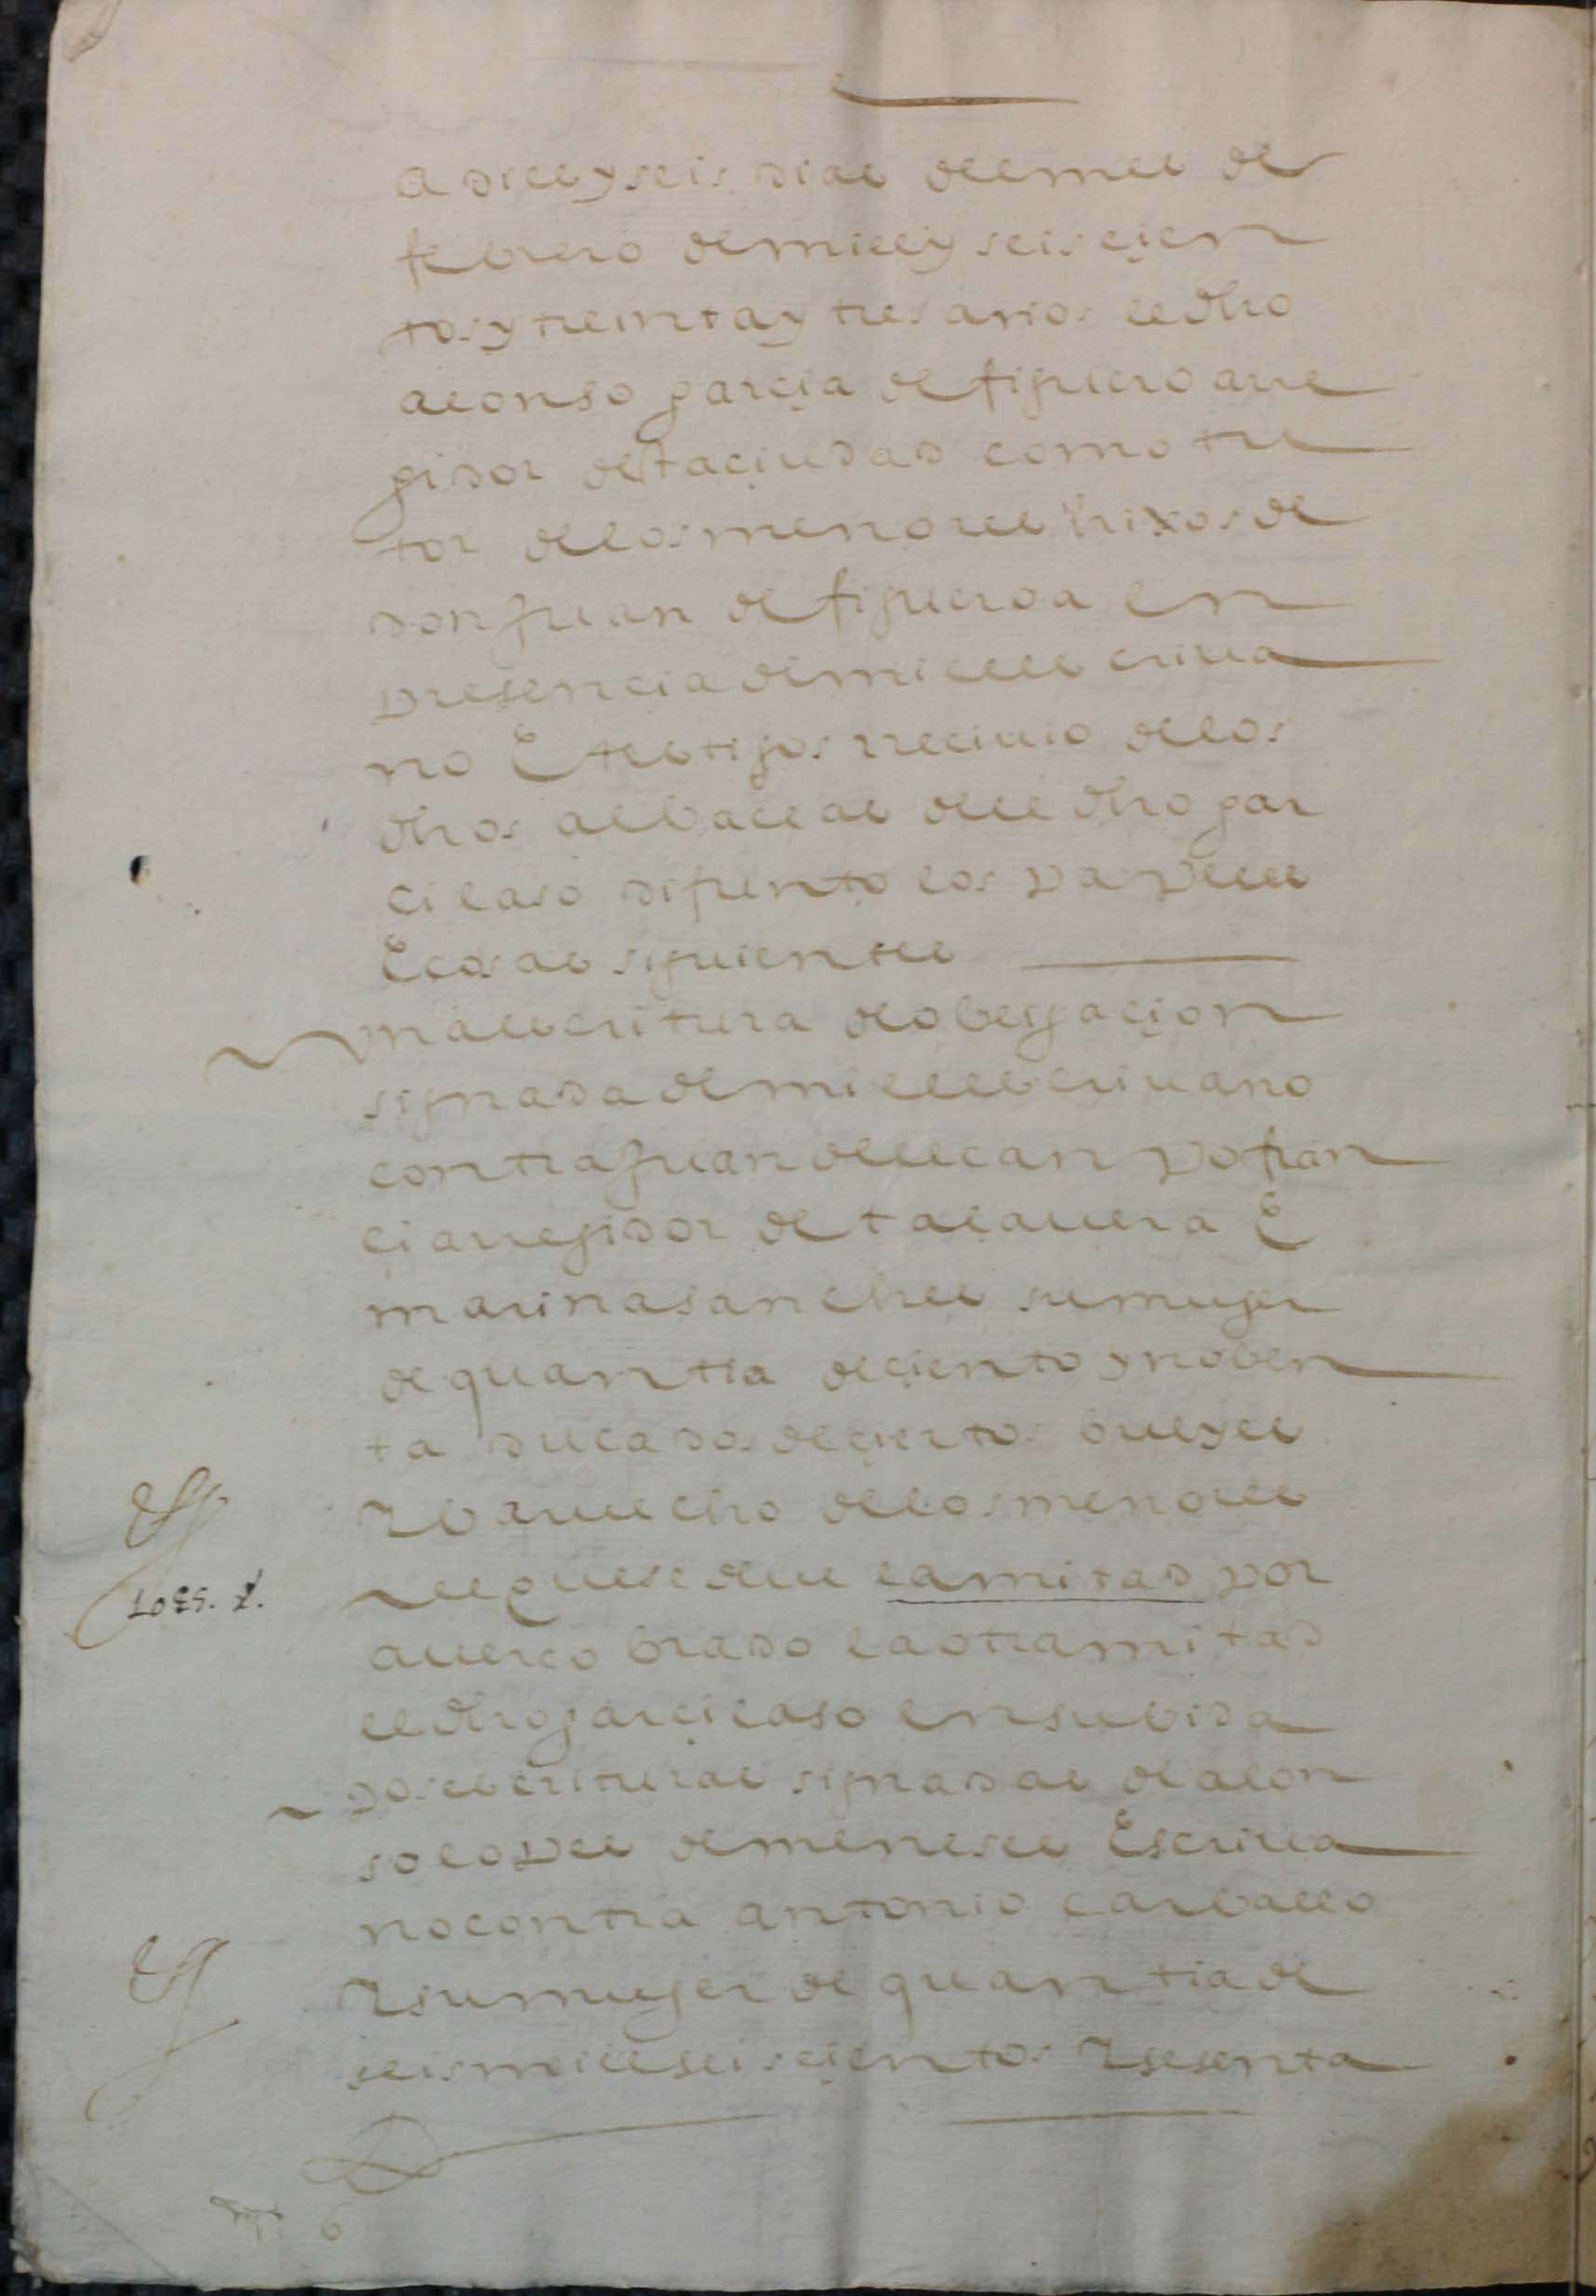 a diez y seis dias del mes de
febrero de mill y seis çien
tos y treinta y tres años el dho
alonso garçia de figueroa rre
gidor desta çiudad como tu
tor de los menores hixos de
don juan de figueroa en
presencia de mi el escriua
no E testigos rreciuio de los
dhos albaçeas del dho gar
cilaso difunto los papeles
E cosas siguientes
vna escritura de obligaçion
signada de mi el escriuano
contra juan del canpo fran
cia rregidor de talauera E
marina sanchez su muger
de quantia de çiento y noben
ta ducados de çiertos bueyes
Y baruecho de los menores
de que se deue la mitad por
auer cobrado la otra mitad
el dho garçilaso en su bida
dos escrituras signadas de alon
so lopez de meneses Escriua
no contra antonio carballo
Y su muger de quantia de
seis mill seisçientos Y sesenta